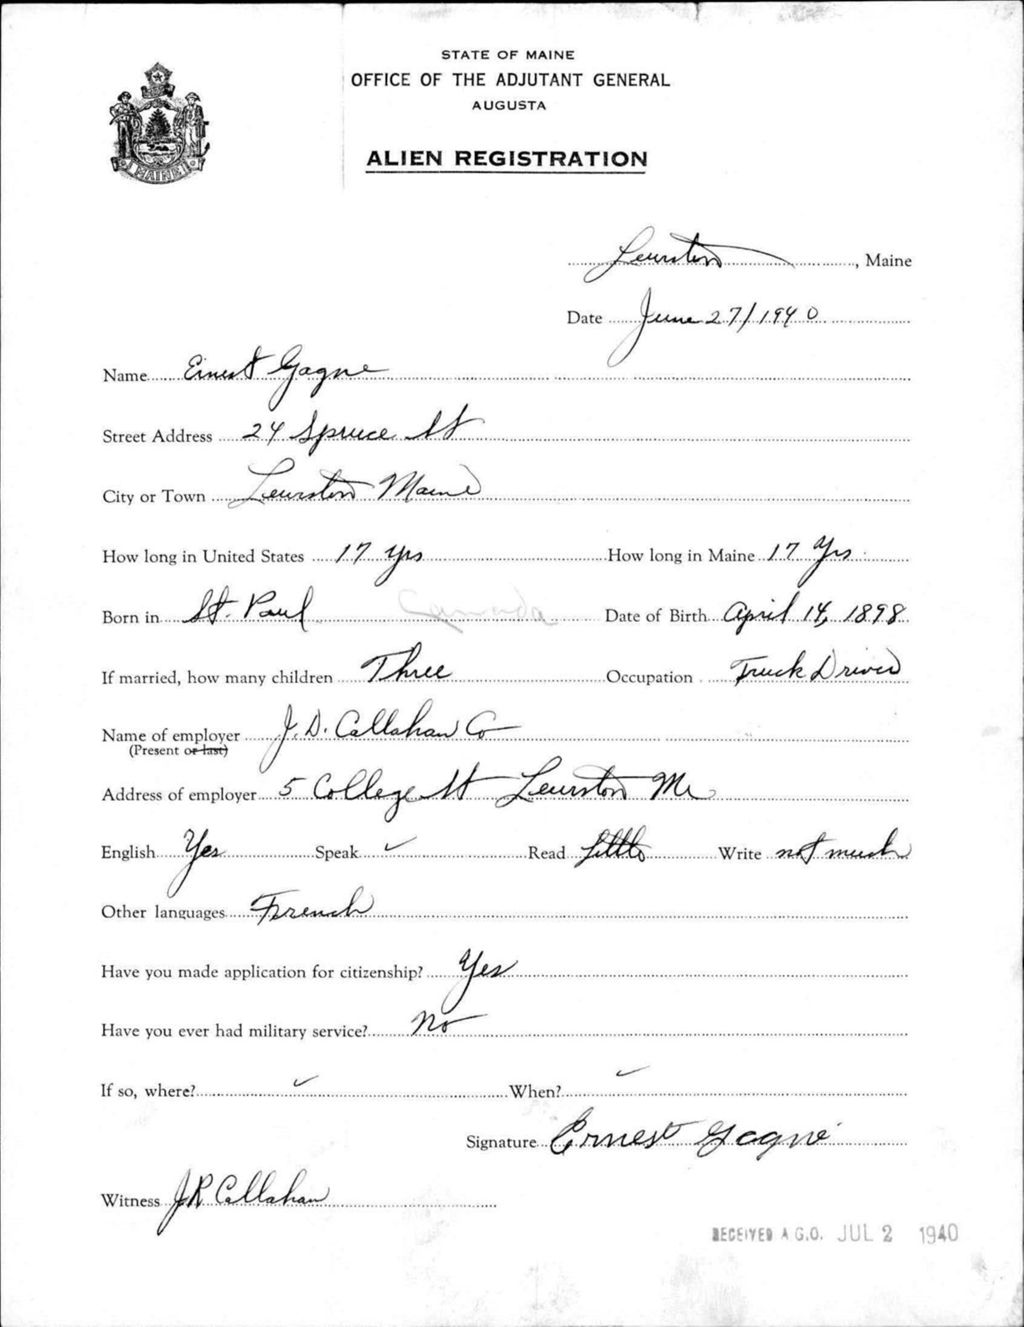 STATE OF MAINE
OFFICE OF THE ADJUTANT GENERAL
AUGUSTA
ALIEN REGISTRATION
MAINE
Lewiston, Maine
Date June 27/1940
Name Ernest Gagne
Street Address 24 Spruce St
City or Town Lewiston Maine
How long in United States 17 yrs How long in Maine 17 Yrs
Born in St. Paul Canada Date of Birth April 14, 1898
If married, how many children Three Occupation Truck Driver
Name of employer J. D. Callahan Co
(Present or last)
Address of employer 5 College St Lewiston Me
English Yes Speak ✓ Read Little Write not much
Other languages French
Have you made application for citizenship? Yes
Have you ever had military service? No
If so, where? ✓ When? ✓
Signature Ernest Gagne
Witness J R Callahan
RECEIVED A.G.O. JUL 2 1940